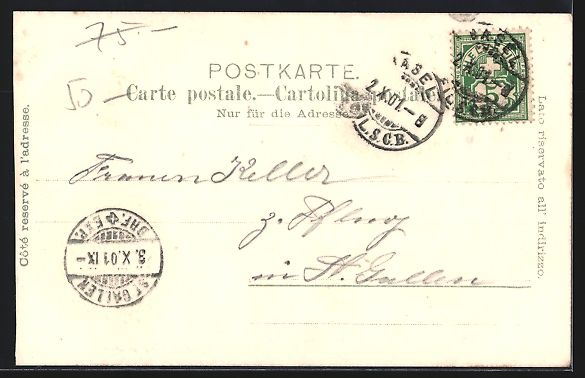 75.-
50-
POSTKARTE.
Carte postale.—Cartolina postale.
Nur für die Adresse.
Côté reservé à l'adresse.
Lato riservato all' indirizzo.
BASEL
2.X.01.-8
L.S.C.B.
Keller
z. Pflug
in St. Gallen
ST. GALLEN
3.X.01.IX-
BRF. EXP.